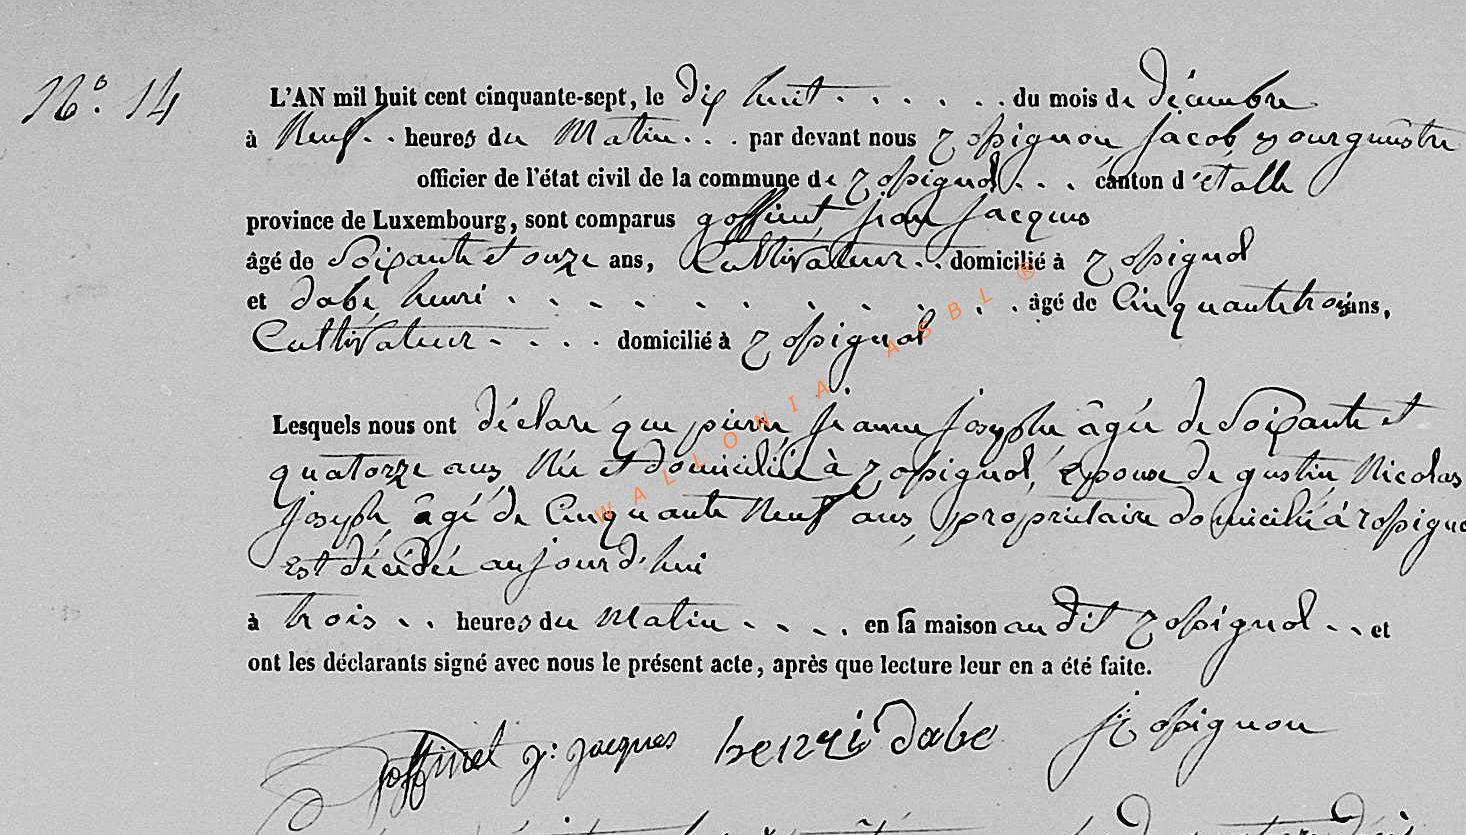 N° 14
L'AN mil huit cent cinquante-sept, le dix huit . . . . . . du mois de décembre
à Neuf . . heures du Matin . . . par devant nous rossignon jacob bourgmestre
officier de l'état civil de la commune de rossignol . . . canton d'étalle
province de Luxembourg, sont comparus goffinet jean jacques
âgé de Soixante et onze ans, Cultivateur . . domicilié à rossignol
et dabe henri . . . . . . . . . . âgé de Cinquante trois ans,
Cultivateur . . . . domicilié à rossignol
Lesquels nous ont déclaré que pierre jeanne josephe âgée de Soixante et
quatorze ans, Née et domiciliée à rossignol, Epouse de gustin Nicolas
joseph, âgé de Cinquante Neuf ans, propriétaire domicilié à rossignol
Est décédée aujourd'hui
à trois . . heures du Matin . . . . en sa maison au dit rossignol . . et
ont les déclarants signé avec nous le présent acte, après que lecture leur en a été faite.
goffinet j: jacques henri dabe J Rossignon
WALLONIA ASBL ®